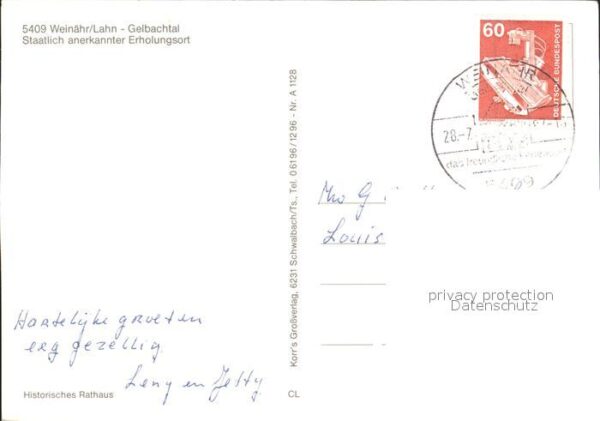 5409 Weinähr/Lahn - Gelbachtal
Staatlich anerkannter Erholungsort
60
DEUTSCHE BUNDESPOST
28.-7.
Korr's Großverlag, 6231 Schwalbach/Ts., Tel. 06196/1296 - Nr. A 1128
G
Louis
privacy protection
Datenschutz
Hartelijke groeten
erg gezellig
Leny en Jetty
Historisches Rathaus
CL